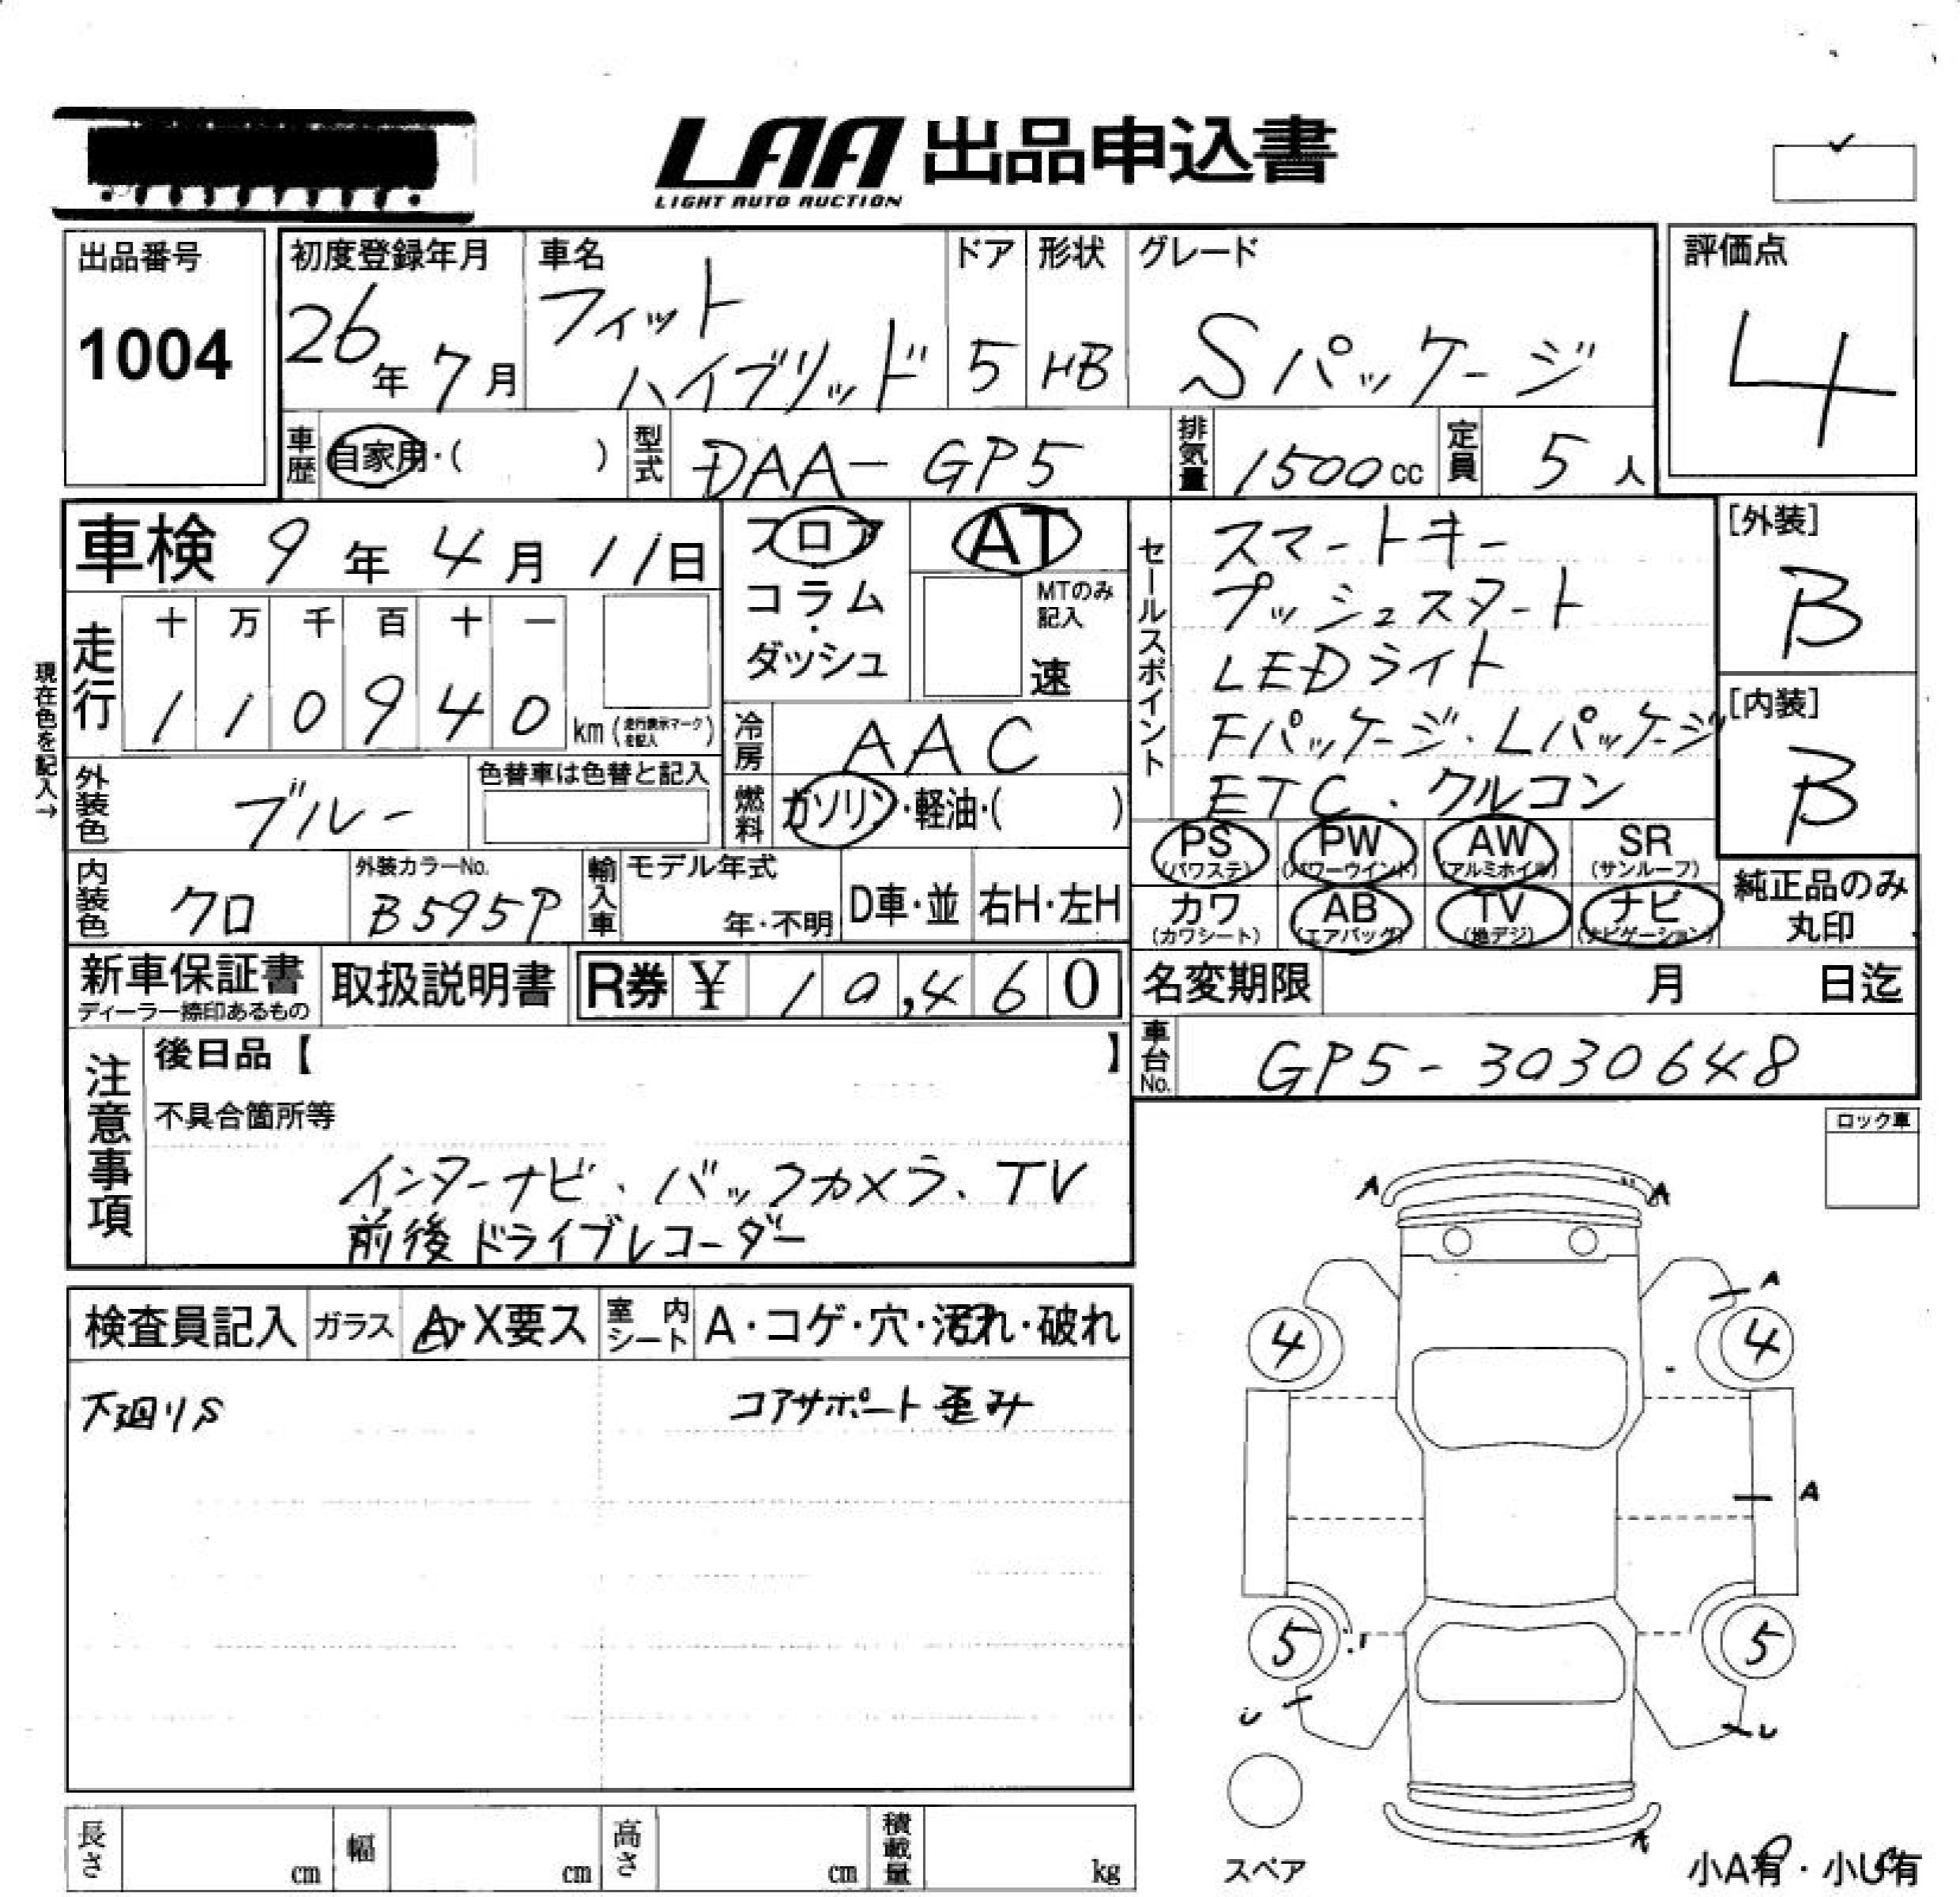 LAA 出品申込書
LIGHT AUTO AUCTION
出品番号
1004
初度登録年月
26年 7月
車名
フィット
ハイブリッド
ドア
5
形状
HB
グレード
Sパッケージ
評価点
4
車歴
自家用・( )
型式
DAA-GP5
排気量
1500cc
定員
5人
車検 9年 4月 11日
フロア
コラム
・
ダッシュ
AT
MTのみ
記入
速
セールスポイント
スマートキー
プッシュスタート
LEDライト
Fパッケージ・Lパッケージ
ETC、クルコン
[外装]
B
[内装]
B
現在色を記入→
走行
十 万 千 百 十 一
1 1 0 9 4 0 km (走行表示マークを記入)
冷房
AAC
外装色
ブルー
色替車は色替と記入
燃料
ガソリン・軽油・( )
PS PW AW SR
(パワステ) (パワーウインド) (アルミホイル) (サンルーフ)
カワ AB TV ナビ
(カワシート) (エアバッグ) (地デジ) (ナビゲーション)
純正品のみ
丸印
内装色
クロ
外装カラーNo.
B595P
輸入車
モデル年式
年・不明
D車・並
右H・左H
新車保証書
ディーラー捺印あるもの
取扱説明書
R券 ¥ 10,460
名変期限 月 日迄
車台No.
GP5-3030648
注意事項
後日品【 】
不具合箇所等
インターナビ、バックカメラ、TV
前後ドライブレコーダー
ロック車
検査員記入
ガラス
A・X要ス
室内シート
A・コゲ・穴・汚れ・破れ
下廻りS
コアサポート歪み
A A
A
4 4
A
5 5
U U
A
スペア
小A有・小U有
長さ cm
幅 cm
高さ cm
積載量 kg